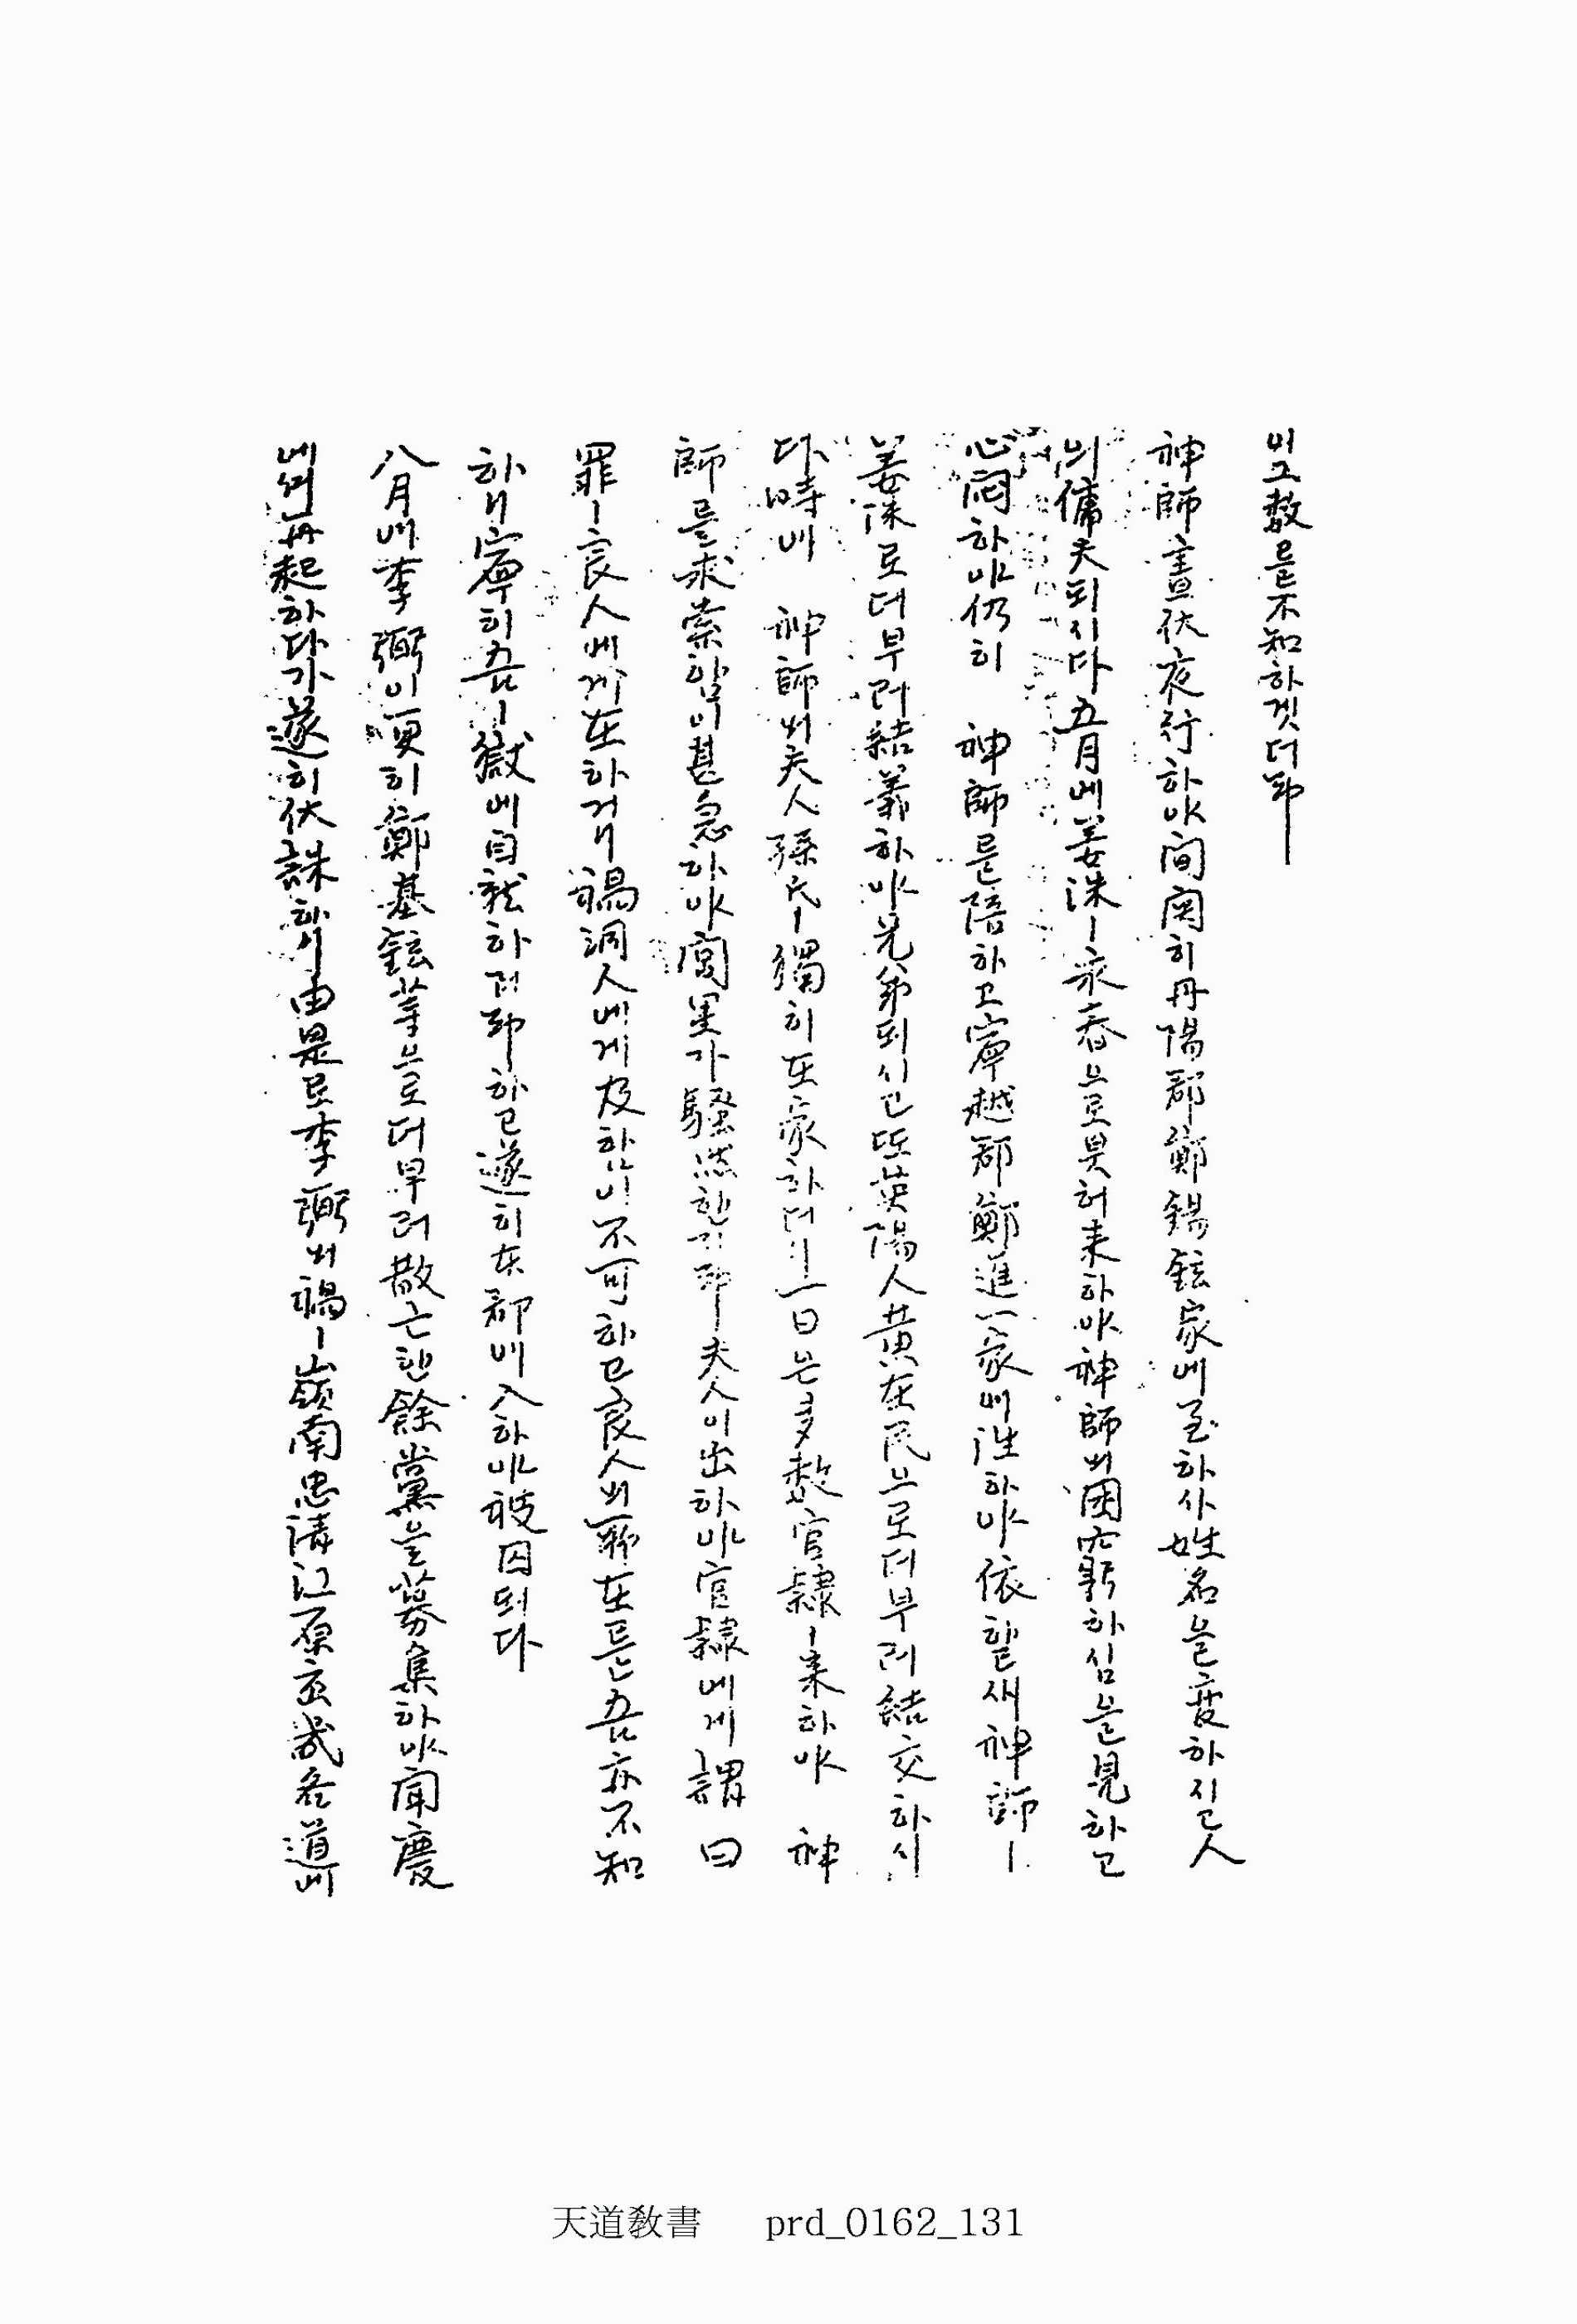 이 그 數를 不知하겟더라
神師 晝伏夜行하야 間關히 丹陽郡 鄭錫鉉家에 至하사 姓名을 變하시고 人
의 傭夫되시다 五月에 姜洙ㅣ 永春으로봇허 來하야 神師의 困窮하심을 見하고
心悶하야 仍히 神師를 陪하고 寧越郡 鄭進一家에 往하야 依할새 神師ㅣ
姜洙로더부러 結義하야 兄弟되시고 또 英陽人 黃在民으로더부러 結交하시
다 時에 神師의 夫人 孫氏ㅣ 獨히 在家하더니 一日은 多數 官隸ㅣ 來하야 神
師를 求索함이 甚急하야 閭里가 騷然한지라 夫人이 出하야 官隸에게 謂曰
罪ㅣ 良人에게 在하거니 禍 洞人에게 及함이 不可하고 良人의 所在를 吾 亦不知
하니 寧히 吾ㅣ 獄에 自就하리라 하고 遂히 本郡에 入하야 被囚되다
八月에 李弼이 更히 鄭基鉉 等으로더부러 散亡한 餘黨을 募集하야 聞慶
에서 再起하다가 遂히 伏誅하니 由是로 李弼의 禍ㅣ 嶺南 忠淸 江原 京畿 各道에
天道敎書 prd_0162_131